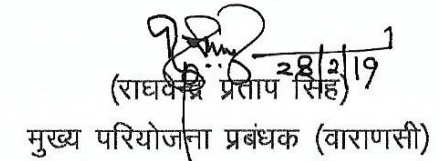 28/2/19
(राघवेन्द्र प्रताप सिंह)
मुख्य परियोजना प्रबंधक (वाराणसी)